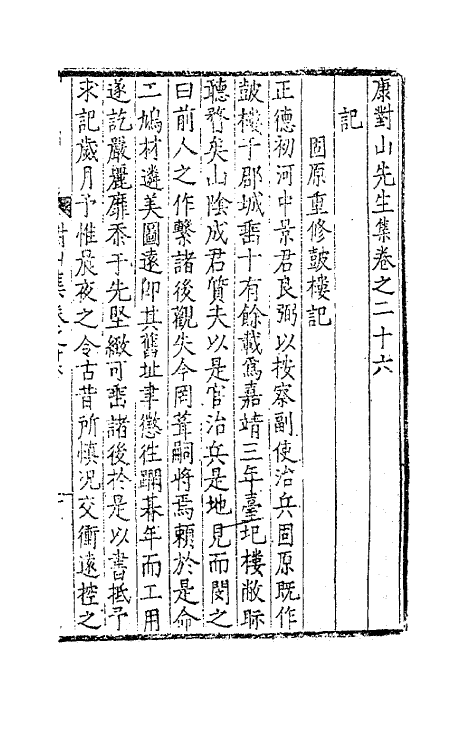 康對山先生集卷之二十六
記
固原重修鼓樓記
正德初河中景君良弼以按察副使治兵固原既作
鼓樓于郡城垂十有餘載爲嘉靖三年臺圮樓敝眎
聽瞀矣山陰成君質夫以是官治兵是地見而閔之
曰前人之作繫諸後觀失今罔葺嗣將焉賴於是命
工鳩材遴美圖遠仰其舊址聿懲徃䠞朞年而工用
遂訖嚴麗靡忝于先堅緻可垂諸後扵是以書抵予
求記歲月予惟晨夜之令古昔所慎况交衝遠控之